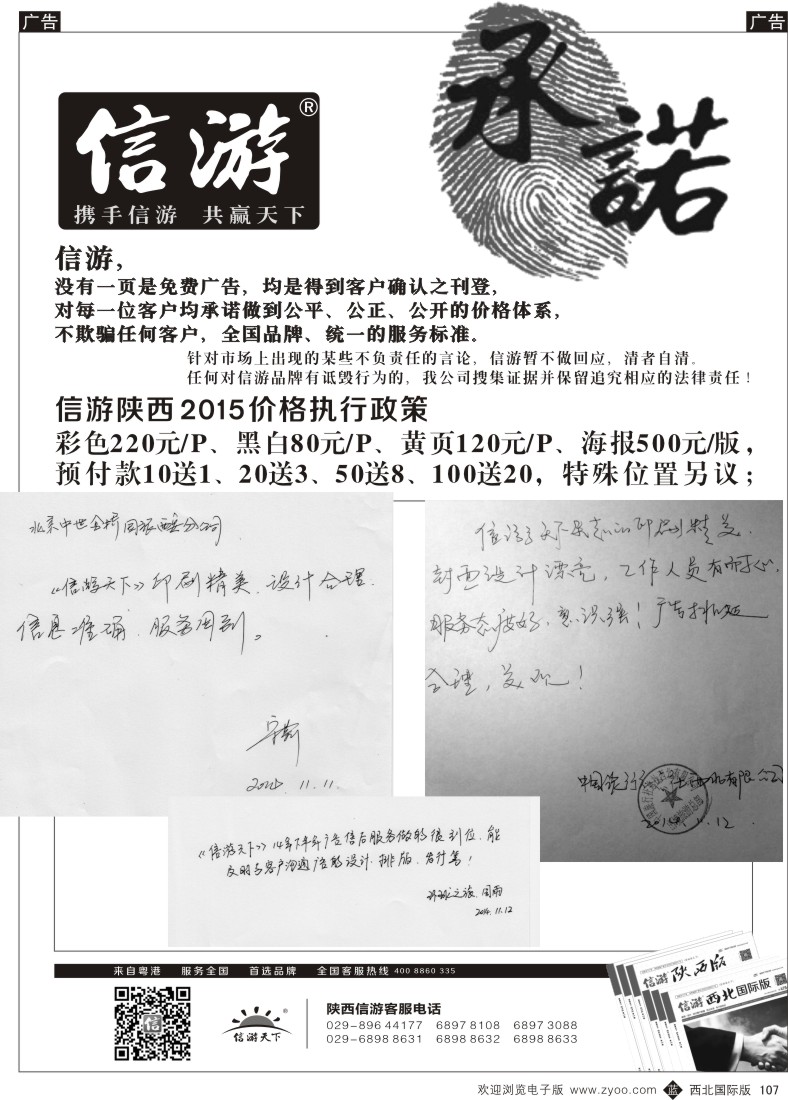 广告
广告
承諾
信游®
携手信游 共赢天下
信游，
没有一页是免费广告，均是得到客户确认之刊登，
对每一位客户均承诺做到公平、公正、公开的价格体系，
不欺骗任何客户，全国品牌、统一的服务标准。
针对市场上出现的某些不负责任的言论，信游暂不做回应，清者自清。
任何对信游品牌有诋毁行为的，我公司搜集证据并保留追究相应的法律责任！
信游陕西2015价格执行政策
彩色220元/P、黑白80元/P、黄页120元/P、海报500元/版，
预付款10送1、20送3、50送8、100送20，特殊位置另议；
北京中世金桥国旅西安分公司
《信游天下》印刷精美、设计合理
信息准确、服务周到。
2014.11.11.
信游天下杂志的印刷精美、
封面设计漂亮，工作人员有耐心，
服务态度好，意识强！广告
合理，美观！
中国旅行
2014.11.12
《信游天下》14年下半年广告售后服务做的很到位，能
及时与客户沟通广告的设计、排版、发行等！
环球之旅 周雨
2014.11.12
来自粤港 服务全国 首选品牌 全国客服热线 400 8860 335
信游
信游天下
陕西信游客服电话
029-896 44177 6897 8108 6897 3088
029-6898 8631 6898 8632 6898 8633
信游 陕西版
信游 西北国际版
欢迎浏览电子版 www.zyoo.com 蓝 西北国际版 107